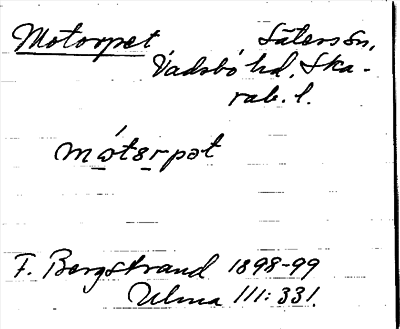 Motorpet Säters sn,
Vadsbo hd, Ska-
rab. l.
mo̱ts̱rpət
F. Bergstrand 1898-99
Ulma 111:331.